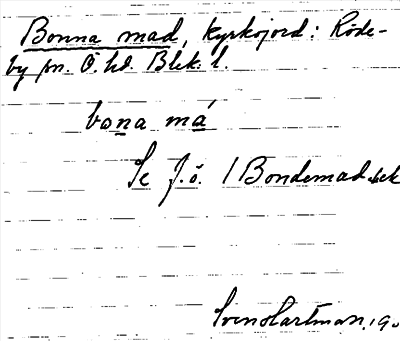 Bonna mad, kyrkojord: Röde-
by sn. Ö. hd. Blek. l.
bona má
Se J.ö. / Bondemad
Sven Hartman, 19